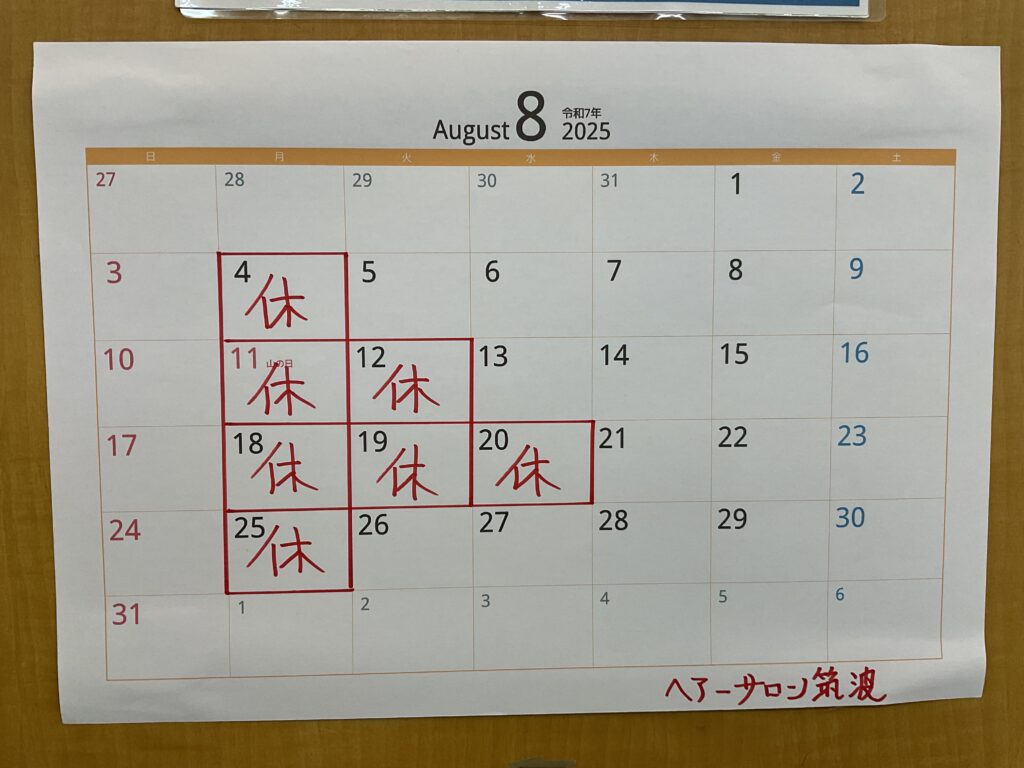 August 8 令和7年 2025
日 月 火 水 木 金 土
27 28 29 30 31 1 2
3 4 5 6 7 8 9
休
10 11 山の日 12 13 14 15 16
休 休
17 18 19 20 21 22 23
休 休 休
24 25 26 27 28 29 30
休
31 1 2 3 4 5 6
ヘアーサロン筑波